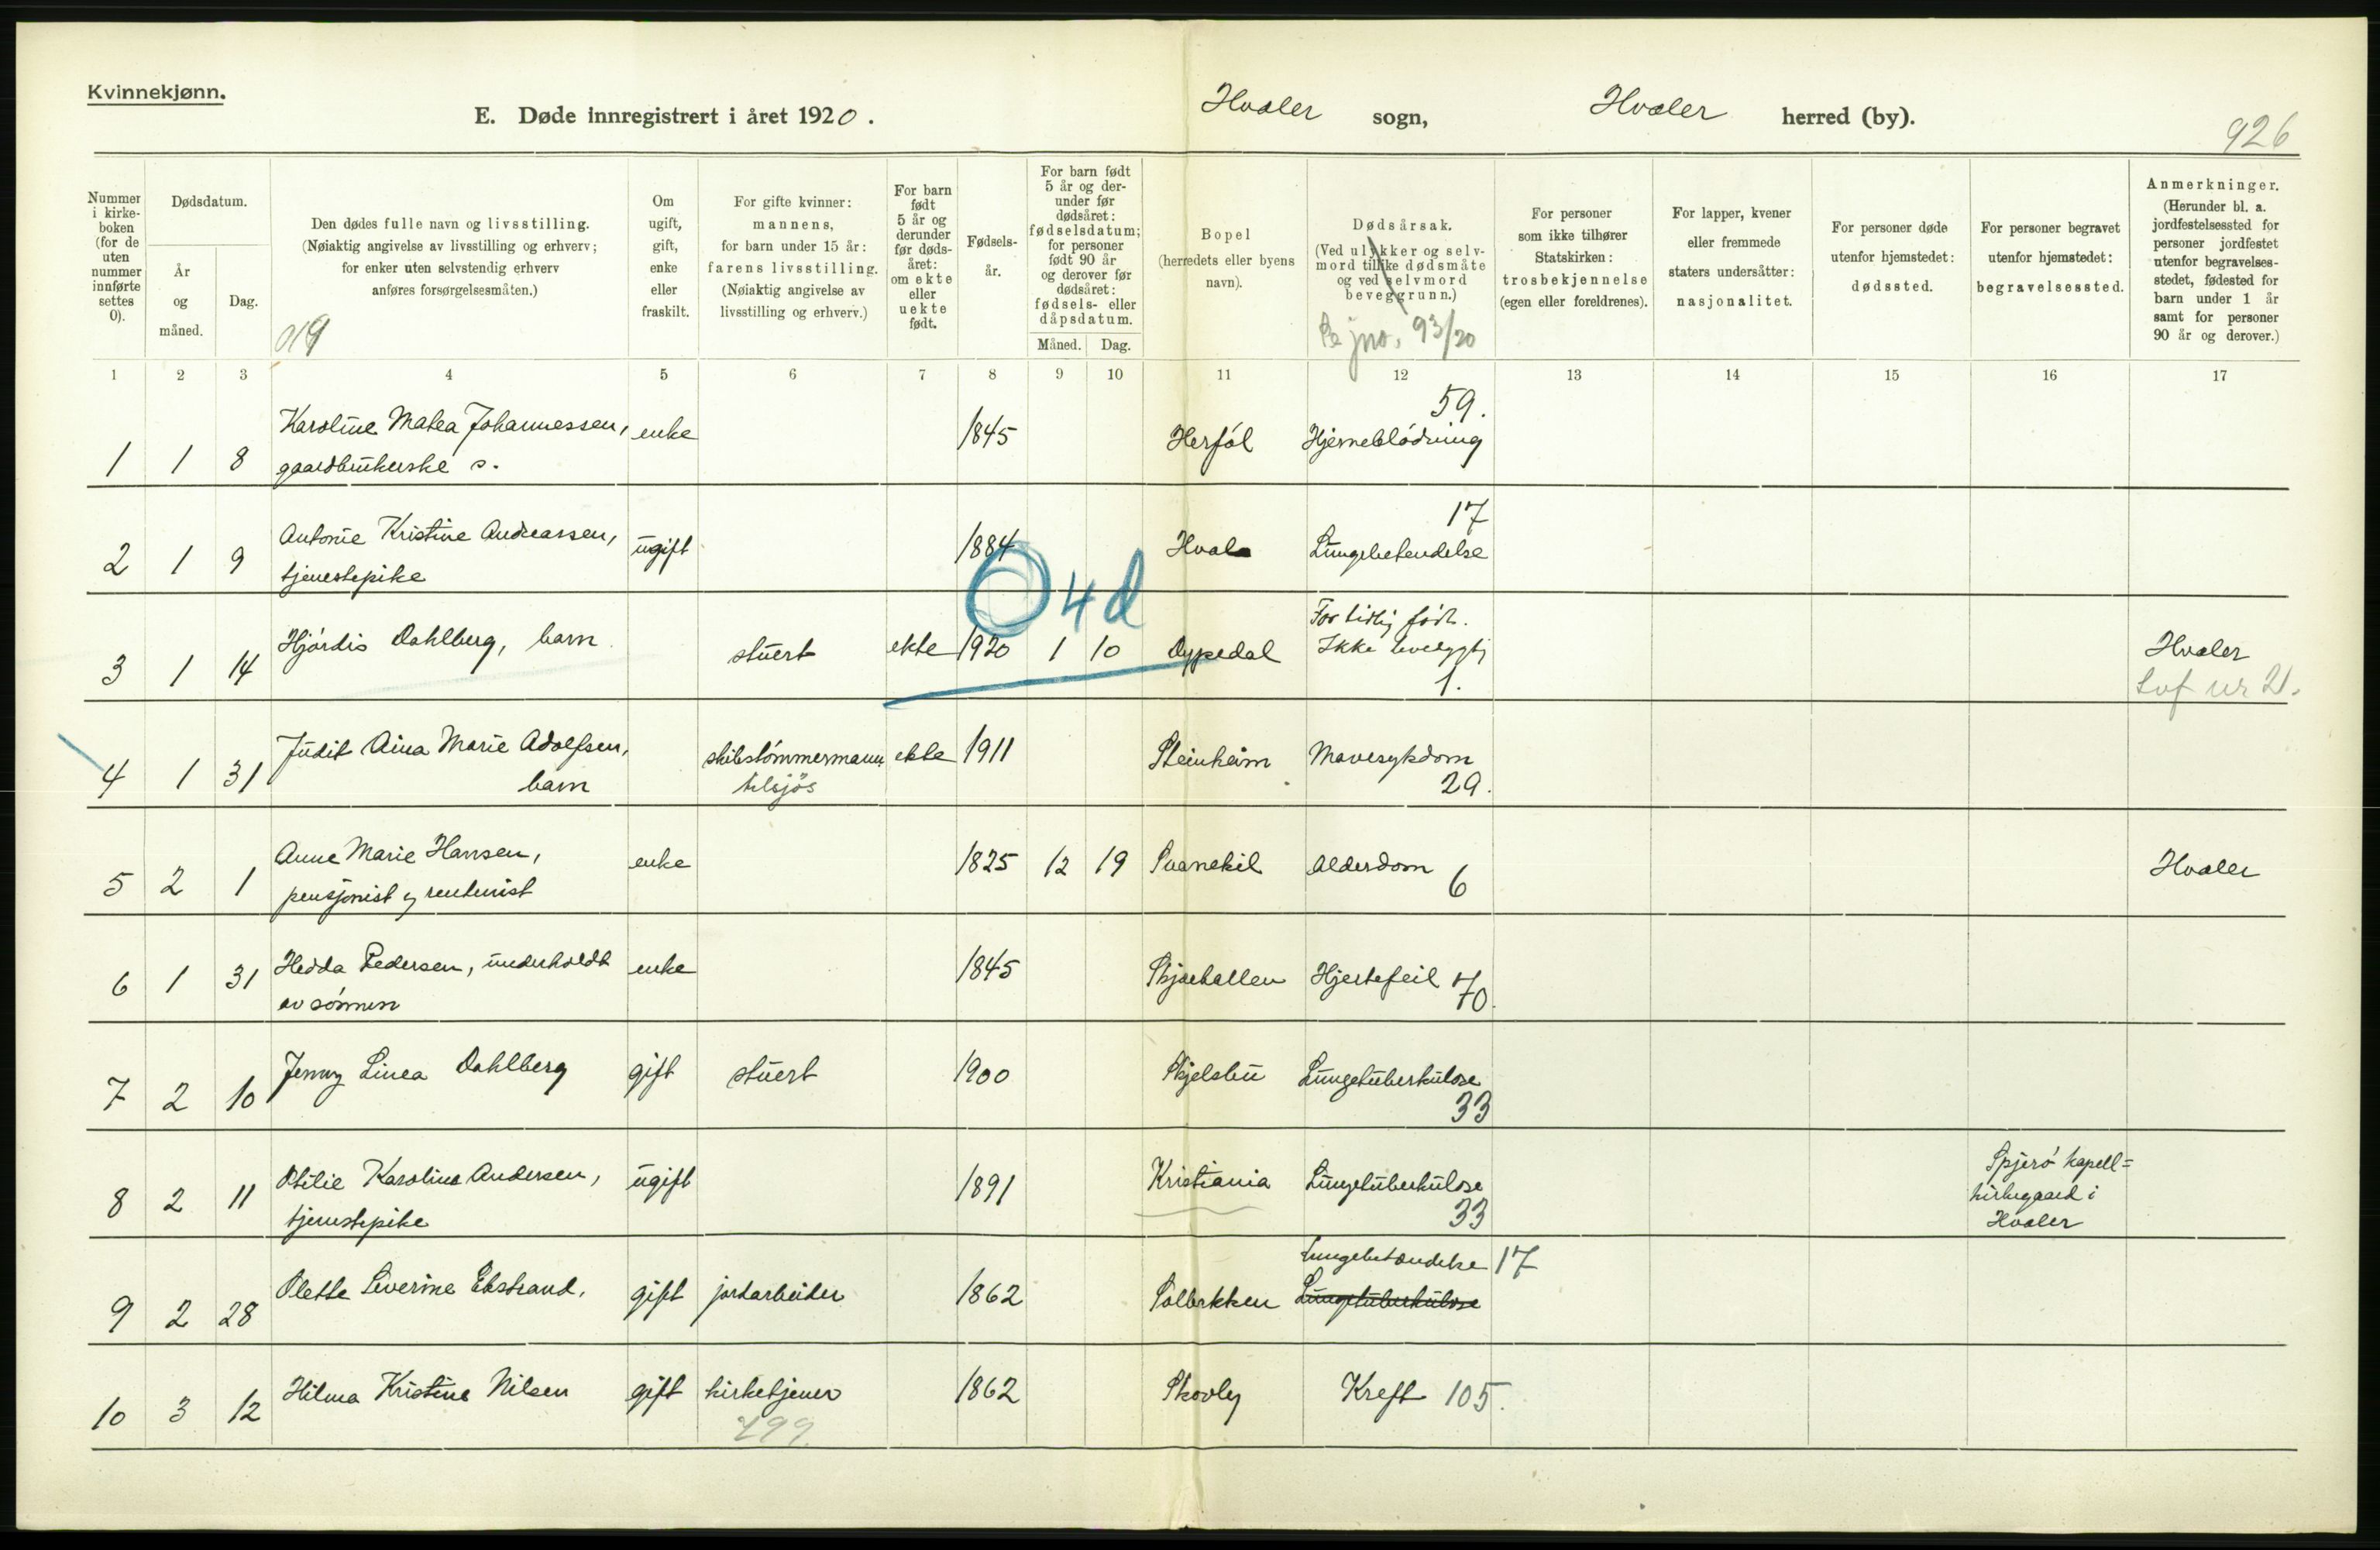 Kvinnekjønn.
E. Døde innregistrert i året 1920.
Hvaler sogn,
Hvaler herred (by).
926
Nummer i kirkeboken (for de uten nummer innførte settes 0).
Dødsdatum.
År og måned.
Dag.
Den dødes fulle navn og livsstilling.
(Nøiaktig angivelse av livsstilling og erhverv;
for enker uten selvstendig erhverv
anføres forsørgelsesmåten.)
019
Om
ugift,
gift,
enke
eller
fraskilt.
For gifte kvinner:
mannens,
for barn under 15 år:
farens livsstilling.
(Nøiaktig angivelse av
livsstilling og erhverv.)
For barn
født
5 år og
derunder
før døds-
året:
om ekte
eller
uekte
født.
Fødsels-
år.
For barn født
5 år og der-
under før
dødsåret:
fødselsdatum;
for personer
født 90 år
og derover før
dødsåret:
fødsels- eller
dåpsdatum.
Måned. Dag.
Bopel
(herredets eller byens
navn).
Dødsårsak.
(Ved ulykker og selv-
mord tillike dødsmåte
og ved selvmord
beveggrunn.)
jno. 93/20
For personer
som ikke tilhører
Statskirken:
trosbekjennelse
(egen eller foreldrenes).
For lapper, kvener
eller fremmede
staters undersåtter:
nasjonalitet.
For personer døde
utenfor hjemstedet:
dødssted.
For personer begravet
utenfor hjemstedet:
begravelsessted.
Anmerkninger.
(Herunder bl. a.
jordfestelsessted for
personer jordfestet
utenfor begravelses-
stedet, fødested for
barn under 1 år
samt for personer
90 år og derover.)
1 2 3 4 5 6 7 8 9 10 11 12 13 14 15 16 17
59.
1 1 8 Karoline Matea Johannessen, enke 1845 Herföl Hjerneblödning
gaardbrukerske s.
17
2 1 9 Antonie Kristine Andreassen, ugift 1884 Hvale Lungebetendelse
tjenestepike
O 4d
For tidlig föd.
3 1 14 Hjördis Dahlberg, barn stuert ekte 1920 1 10 Dypedal Ikke Hvaler
1. nr 21.
4 1 31 Judit Aina Marie Adolfsen, skibstömmermann ekte 1911 Steinheim Mavesykdom
barn tilsjös 29.
5 2 1 Anne Marie Hansen, enke 1825 12 19 Svanekil Alderdom 6 Hvaler
pensjonist og rentenist
6 1 31 Hedda Pedersen, underholdt enke 1845 Skjærhallen Hjertefeil 70.
av sönnen
7 2 10 Jenny Linea Dahlberg gift stuert 1900 Skjelsbu Lungetuberkulose
33
8 2 11 Otilie Karoline Andersen, ugift 1891 Kristiania Lungetuberkulose Spjerö kapell=
tjenestepike 33 kirkegaard i
Hvaler
Lungebetændelse 17
9 2 28 Olette Severine Ekstrand, gift jordarbeider 1862 Solbrekken Lungetuberkulose
10 3 12 Hilma Kristine Nilsen gift kirketjener 1862 Skovly Kreft 105.
299.